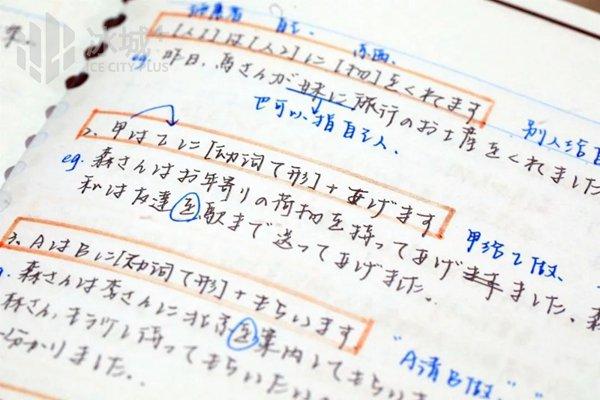 自己
东西
冰城+
ICE CITY PLUS
1. [人1]は[人2]に[物]をくれます
eg. 昨日、馬さんが妹に旅行のお土産をくれました
也可以指自己人.
别人给自
2. 甲は乙に[动词て形]+あげます
eg. 森さんはお年寄りの荷物を持ってあげました. 森
私は友達を駅まで送ってあげました.
甲给乙做.
3. AはBに[动词て形]+もらいます
森さんは李さんに北京を案内してもらいま
林さん,
待ってもらいたい
"A请B做."
分かりました..